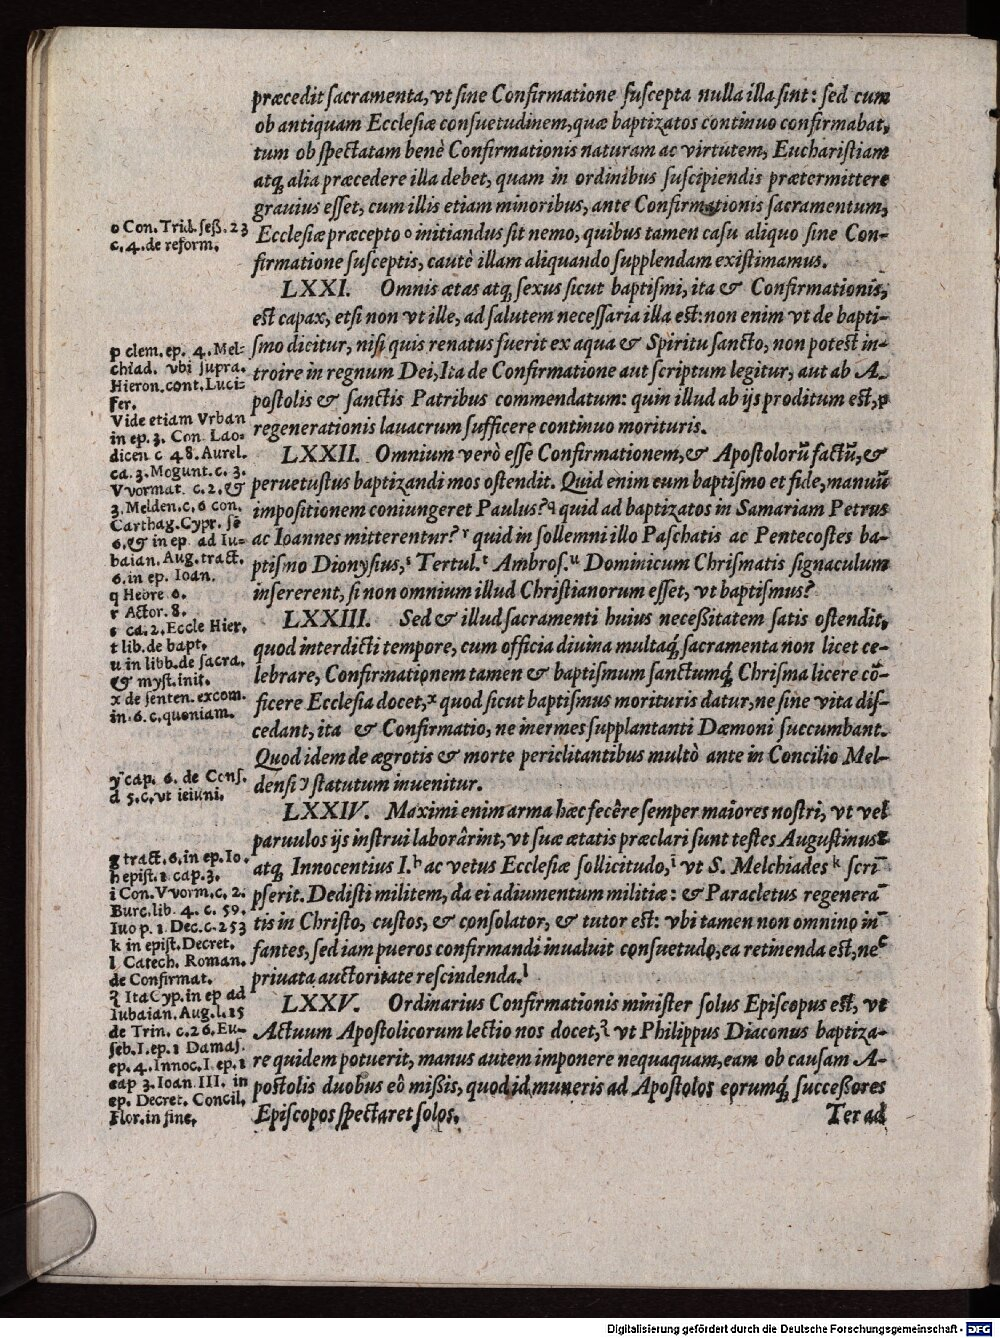 præcedit ſacramenta, vt ſine Confirmatione ſuſcepta nulla illa ſint: ſed cum
ob antiquam Eccleſiæ conſuetudinem, quæ baptizatos continuo confirmabat,
tum ob ſpectatam benè Confirmationis naturam ac virtutem, Euchariſtiam
atq; alia præcedere illa debet, quam in ordinibus ſuſcipiendis prætermittere
grauius eſſet, cum illis etiam minoribus, ante Confirmationis ſacramentum,
Eccleſiæ præcepto o initiandus ſit nemo, quibus tamen caſu aliquo ſine Con-
firmatione ſuſceptis, cautè illam aliquando ſupplendam exiſtimamus.
LXXI. Omnis ætas atq; ſexus ſicut baptiſmi, ita & Confirmationis,
eſt capax, etſi non vt ille, ad ſalutem neceſſaria illa eſt: non enim vt de bapti-
ſmo dicitur, niſi quis renatus fuerit ex aqua & Spiritu ſancto, non poteſt in-
troire in regnum Dei, Ita de Confirmatione aut ſcriptum legitur, aut ab A-
poſtolis & ſanctis Patribus commendatum: quin illud ab ijs proditum eſt, p
regenerationis lauacrum ſufficere continuo morituris.
LXXII. Omnium verò eſſe Confirmationem, & Apoſtolorũ factũ, &
peruetuſtus baptizandi mos oſtendit. Quid enim cum baptiſmo et fide, manuũ
impoſitionem coniungeret Paulus? q quid ad baptizatos in Samariam Petrus
ac Ioannes mitterentur? r quid in ſollemni illo Paſchatis ac Pentecoſtes ba-
ptiſmo Dionyſius, s Tertul. t Ambroſ. u Dominicum Chriſmatis ſignaculum
inſererent, ſi non omnium illud Chriſtianorum eſſet, vt baptiſmus?
LXXIII. Sed & illud ſacramenti huius neceßitatem ſatis oſtendit,
quod interdicti tempore, cum officia diuina multaq́; ſacramenta non licet ce-
lebrare, Confirmationem tamen & baptiſmum ſanctumq́; Chriſma licere cõ-
ficere Eccleſia docet, x quod ſicut baptiſmus morituris datur, ne ſine vita diſ-
cedant, ita & Confirmatio, ne inermes ſupplantanti Dæmoni ſuccumbant.
Quod idem de ægrotis & morte periclitantibus multò ante in Concilio Mel-
denſi y ſtatutum inuenitur.
LXXIV. Maximi enim arma hæc fecêre ſemper maiores noſtri, vt vel
paruulos ijs inſtrui laborârint, vt ſuæ ætatis præclari ſunt teſtes Auguſtinus g
atq; Innocentius I. h ac vetus Eccleſiæ ſollicitudo, i vt S. Melchiades k ſcri-
pſerit. Dediſti militem, da ei adiumentum militiæ: & Paracletus regenera-
tis in Chriſto, cuſtos, & conſolator, & tutor eſt: vbi tamen non omnino in-
fantes, ſed iam pueros confirmandi inualuit conſuetudo, ea retinenda eſt, nec
priuata auctoritate reſcindenda. l
LXXV. Ordinarius Confirmationis miniſter ſolus Epiſcopus eſt, vt
Actuum Apoſtolicorum lectio nos docet, ꝛ vt Philippus Diaconus baptiza-
re quidem potuerit, manus autem imponere nequaquam, eam ob cauſam A-
poſtolis duobus eô mißis, quod id muneris ad Apoſtolos eorumq́; ſucceßores
Epiſcopos ſpectaret ſolos.
Ter ad
o Con. Trid. ſeß. 23
c. 4. de reform.
p clem. ep. 4. Mel-
chiad. vbi ſupra.
Hieron. cont. Luci-
fer.
Vide etiam Vrban
in ep. 3. Con. Lao-
dicen. c 48. Aurel.
ca. 3. Mogunt. c. 3.
Vvormat. c. 2. &
3. Melden. c. 6 con.
Carthag. Cypr. ſē
6. & in ep. ad Iu-
baian. Aug. tract.
6. in ep. Ioan.
q Hebre 6.
r Actor. 8.
s ca. 2. Eccle Hier.
t lib. de bapt.
u in libb. de ſacra.
& myſt. init.
x de ſenten. excom.
in. 6. c. quoniam.
y cap. 6. de Conſ.
d 5. c. vt ieiuni.
g tract. 6. in ep. Io.
h epiſt. 1 cap. 3.
i Con. Vvorm. c. 2.
Burc. lib. 4. c. 59.
Iuo p. 1. Dec. c. 253
k in epiſt. Decret.
l Catech. Roman.
de Confirmat.
ꝛ Ita Cyp. in ep ad
Iubaian. Aug. l. 15
de Trin. c. 26. Eu-
ſeb. I. ep. 1 Damaſ.
ep. 4. Innoc. I. ep. 1
cap 3. Ioan. III. in
ep. Decret. Concil.
Flor. in fine.
Digitalisierung gefördert durch die Deutsche Forschungsgemeinschaft - DFG